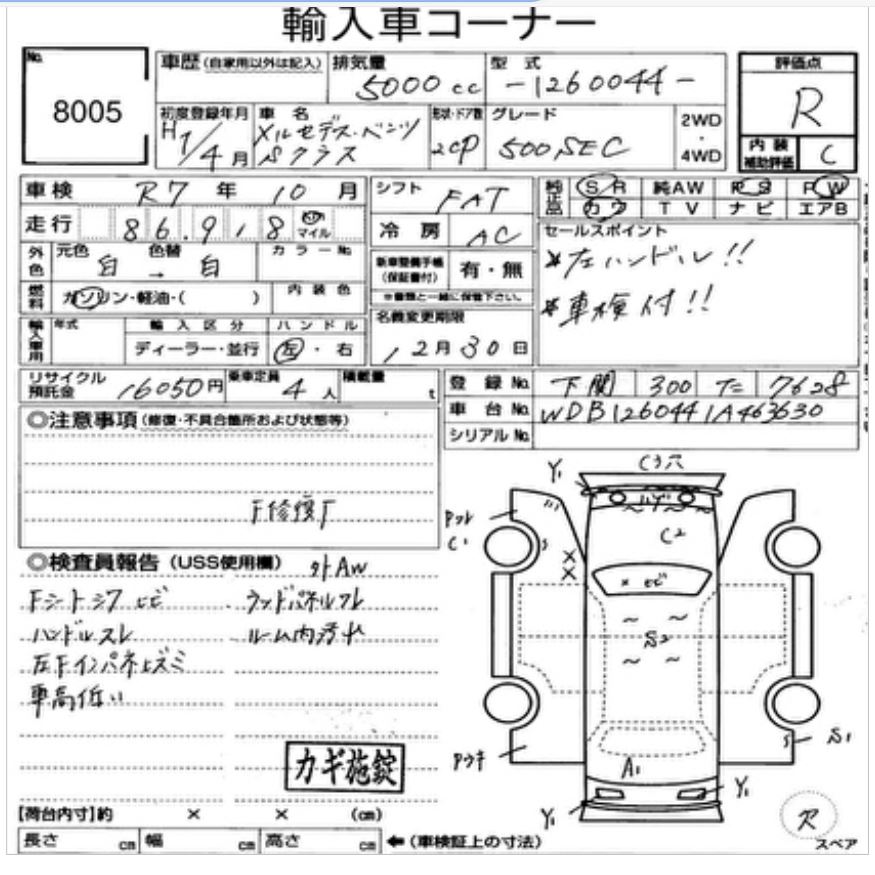 輸入車コーナー
No.
8005
車歴 (自家用以外は記入)
排気量
5000 cc
型式
-1260044-
評価点
R
初度登録年月
H1/4月
車名
メルセデス・ベンツ
Sクラス
形状・ドア数
2CP
グレード
500 SEC
2WD
・
4WD
内装
補助評価
C
車検 R7年 10月
シフト
FAT
純正品
SR 純AW PS PW
カワ TV ナビ エアB
走行 86,918
マイル
冷房
AC
セールスポイント
*左ハンドル!!
*車検付!!
外色
元色 色替
白 → 白
カラーNo.
新車整備手帳
(保証書付)
有・無
※書類と一緒に保管下さい。
燃料
ガソリン・軽油・( )
内装色
名義変更期限
12月30日
輸入車用
年式
輸入区分
ディーラー・並行
ハンドル
左・右
リサイクル
預託金
16050円
乗車定員
4人
積載量
t
登録No. 下関 300 7628
車台No. WDB1260441A463630
シリアルNo.
◎注意事項 (修復・不具合箇所および状態等)
F修復F
◎検査員報告 (USS使用欄)
外AW
Fシートシワ ヒビ
ハンドルスレ
ルーム内汚レ
車高低い
カギ施錠
Y1
C3穴
C1
C2
× ヒビ
S2
A1
S1
Y1
Y1
R
スペア
[荷台内寸]約 × × (cm)
長さ cm 幅 cm 高さ cm ←(車検証上の寸法)